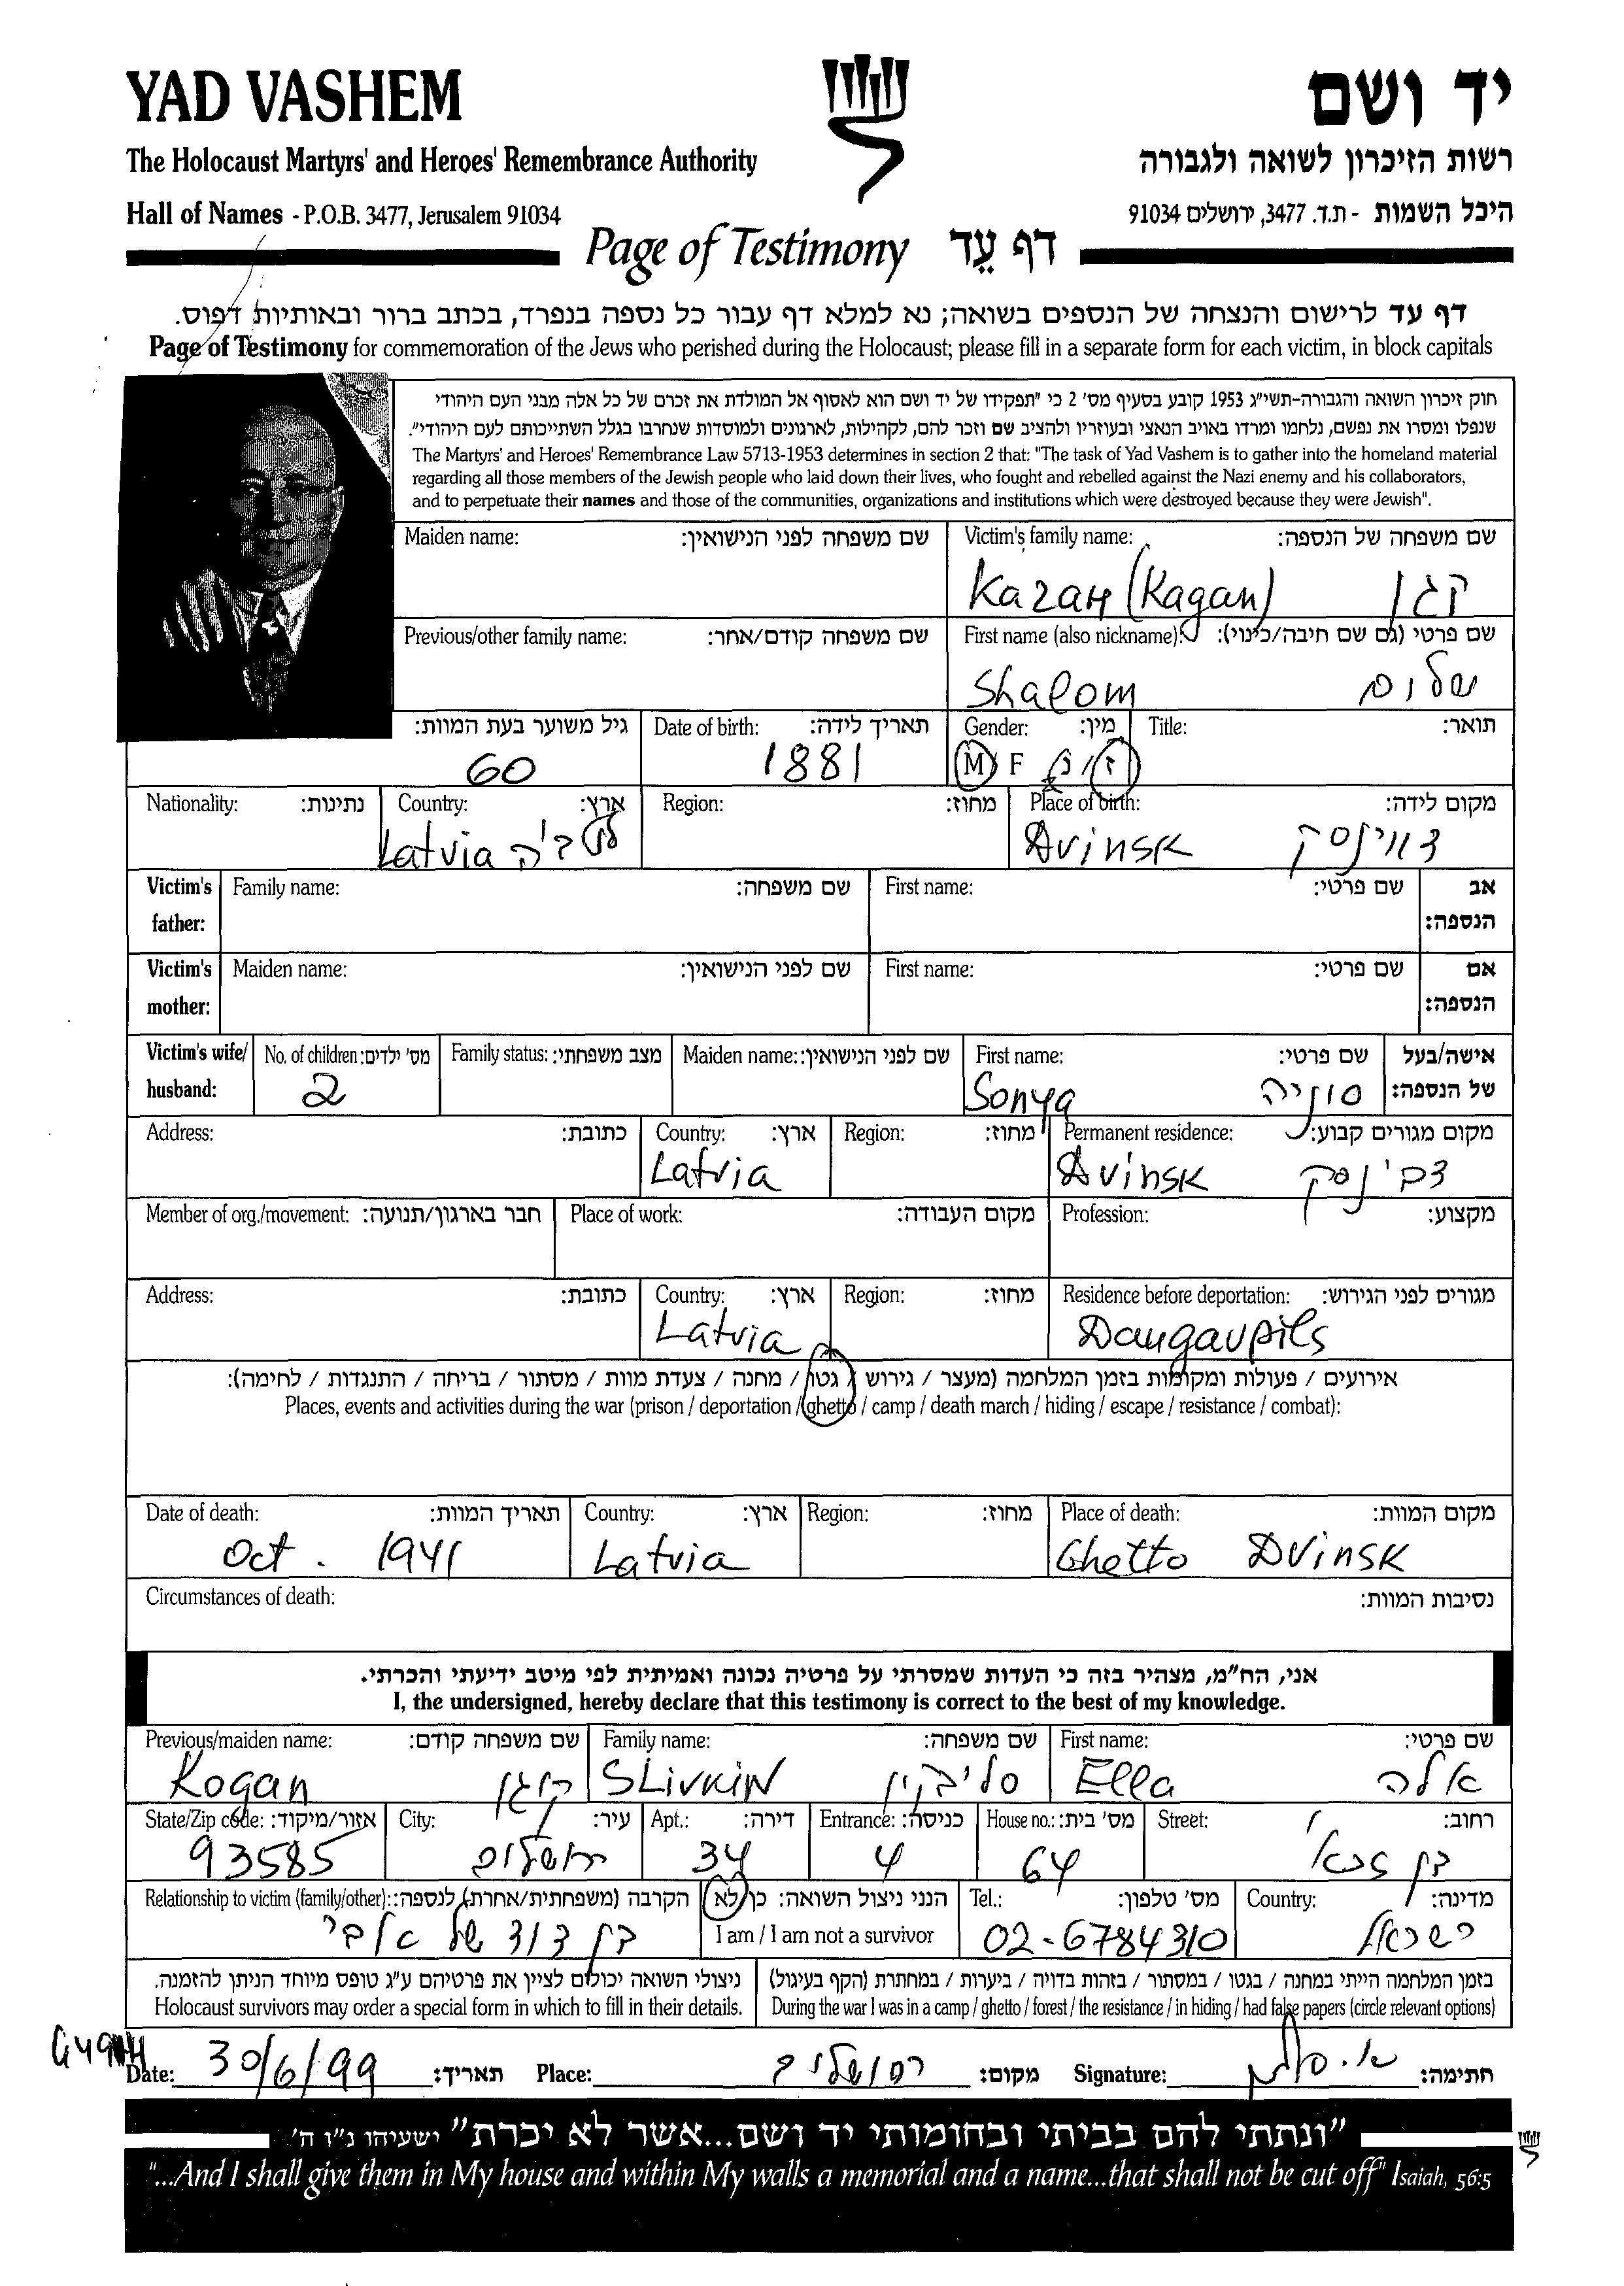 YAD VASHEM
יד ושם
The Holocaust Martyrs' and Heroes' Remembrance Authority
רשות הזיכרון לשואה ולגבורה
Hall of Names - P.O.B. 3477, Jerusalem 91034
היכל השמות - ת.ד. 3477, ירושלים 91034
Page of Testimony דף עֵד
דף עד לרישום והנצחה של הנספים בשואה; נא למלא דף עבור כל נספה בנפרד, בכתב ברור ובאותיות דפוס.
Page of Testimony for commemoration of the Jews who perished during the Holocaust; please fill in a separate form for each victim, in block capitals
חוק זיכרון השואה והגבורה-תשי"ג 1953 קובע בסעיף מס' 2 כי "תפקידו של יד ושם הוא לאסוף אל המולדת את זכרם של כל אלה מבני העם היהודי
שנפלו ומסרו את נפשם, נלחמו ומרדו באויב הנאצי ובעוזריו ולהציב שם וזכר להם, לקהילות, לארגונים ולמוסדות שנחרבו בגלל השתייכותם לעם היהודי".
The Martyrs' and Heroes' Remembrance Law 5713-1953 determines in section 2 that: "The task of Yad Vashem is to gather into the homeland material
regarding all those members of the Jewish people who laid down their lives, who fought and rebelled against the Nazi enemy and his collaborators,
and to perpetuate their names and those of the communities, organizations and institutions which were destroyed because they were Jewish".
Maiden name: שם משפחה לפני הנישואין:
Victim's family name: שם משפחה של הנספה:
Каган (Kagan) קגן
Previous/other family name: שם משפחה קודם/אחר:
First name (also nickname): שם פרטי (גם שם חיבה/כינוי):
Shalom שלום
גיל משוער בעת המוות: Date of birth: תאריך לידה: Gender: מין: Title: תואר:
60 1881 M F ז/נ
Nationality: נתינות: Country: ארץ: Region: מחוז: Place of birth: מקום לידה:
Latvia לטביה Dvinsk דווינסק
Victim's father: Family name: שם משפחה: First name: שם פרטי: אב הנספה:
Victim's mother: Maiden name: שם לפני הנישואין: First name: שם פרטי: אם הנספה:
Victim's wife/husband: No. of children: מס' ילדים: Family status: מצב משפחתי: Maiden name: שם לפני הנישואין: First name: שם פרטי: אישה/בעל של הנספה:
2 Sonya סוניה
Address: כתובת: Country: ארץ: Region: מחוז: Permanent residence: מקום מגורים קבוע:
Latvia Dvinsk דבינסק
Member of org./movement: חבר בארגון/תנועה: Place of work: מקום העבודה: Profession: מקצוע:
Address: כתובת: Country: ארץ: Region: מחוז: Residence before deportation: מגורים לפני הגירוש:
Latvia Daugavpils
אירועים / פעולות ומקומות בזמן המלחמה (מעצר / גירוש / גטו / מחנה / צעדת מוות / מסתור / בריחה / התנגדות / לחימה):
Places, events and activities during the war (prison / deportation / ghetto / camp / death march / hiding / escape / resistance / combat):
Date of death: תאריך המוות: Country: ארץ: Region: מחוז: Place of death: מקום המוות:
Oct. 1941 Latvia Ghetto Dvinsk
Circumstances of death: נסיבות המוות:
אני, הח"מ, מצהיר בזה כי העדות שמסרתי על פרטיה נכונה ואמיתית לפי מיטב ידיעתי והכרתי.
I, the undersigned, hereby declare that this testimony is correct to the best of my knowledge.
Previous/maiden name: שם משפחה קודם: Family name: שם משפחה: First name: שם פרטי:
Kogan קוגן SLivkin סליבקין Ella אלה
State/Zip code: אזור/מיקוד: City: עיר: Apt.: דירה: Entrance: כניסה: House no.: מס' בית: Street: רחוב:
93585 ירושלים 34 4 64
Relationship to victim (family/other): הקרבה (משפחתית/אחרת) לנספה: הנני ניצול השואה: כן/לא Tel.: מס' טלפון: Country: מדינה:
בן דוד של אבי I am / I am not a survivor 02-6784310 ישראל
ניצולי השואה יכולים לציין את פרטיהם ע"ג טופס מיוחד הניתן להזמנה.
Holocaust survivors may order a special form in which to fill in their details.
בזמן המלחמה הייתי במחנה / בגטו / במסתור / בזהות בדויה / ביערות / במחתרת (הקף בעיגול)
During the war I was in a camp / ghetto / forest / the resistance / in hiding / had false papers (circle relevant options)
Date: 30/6/99 תאריך: Place: ירושלים מקום: Signature: חתימה:
"ונתתי להם בביתי ובחומותי יד ושם...אשר לא יכרת" ישעיהו נ"ו ה'
"...And I shall give them in My house and within My walls a memorial and a name...that shall not be cut off" Isaiah, 56:5